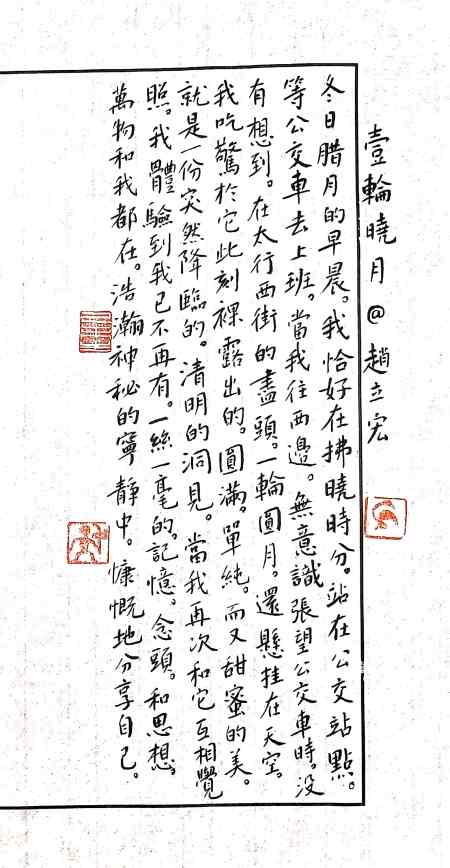 壹輪曉月@趙立宏
冬日腊月的早晨。我恰好在拂曉時分。站在公交站點。
等公交車去上班。當我往西邊。無意識張望公交車時。没
有想到。在太行西街的盡頭。一輪圓月。還懸挂在天空。
我吃驚於它此刻裸露出的。圓滿。單純。而又甜蜜的美。
就是一份突然降臨的。清明的洞見。當我再次和它互相覺
照。我體驗到我已不再有。一絲一毫的。記憶。念頭。和思想。
萬物和我都在。浩瀚神秘的寧靜中。慷慨地分享自己。